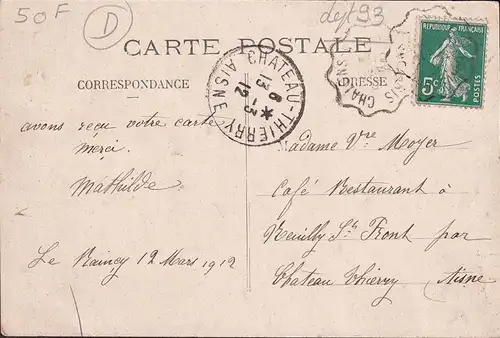 50F
D
dept 93
CARTE POSTALE
CORRESPONDANCE
ADRESSE
CHATEAU-THIERRY
AISNE
13
6 - 3
12
REPUBLIQUE FRANÇAISE
5c
POSTES
avons reçu votre carte
merci.
Mathilde
Le Raincy 12 Mars 1912
Madame Vve Moyer
Café Restaurant à
Neuilly St Front par
Chateau Thierry Aisne